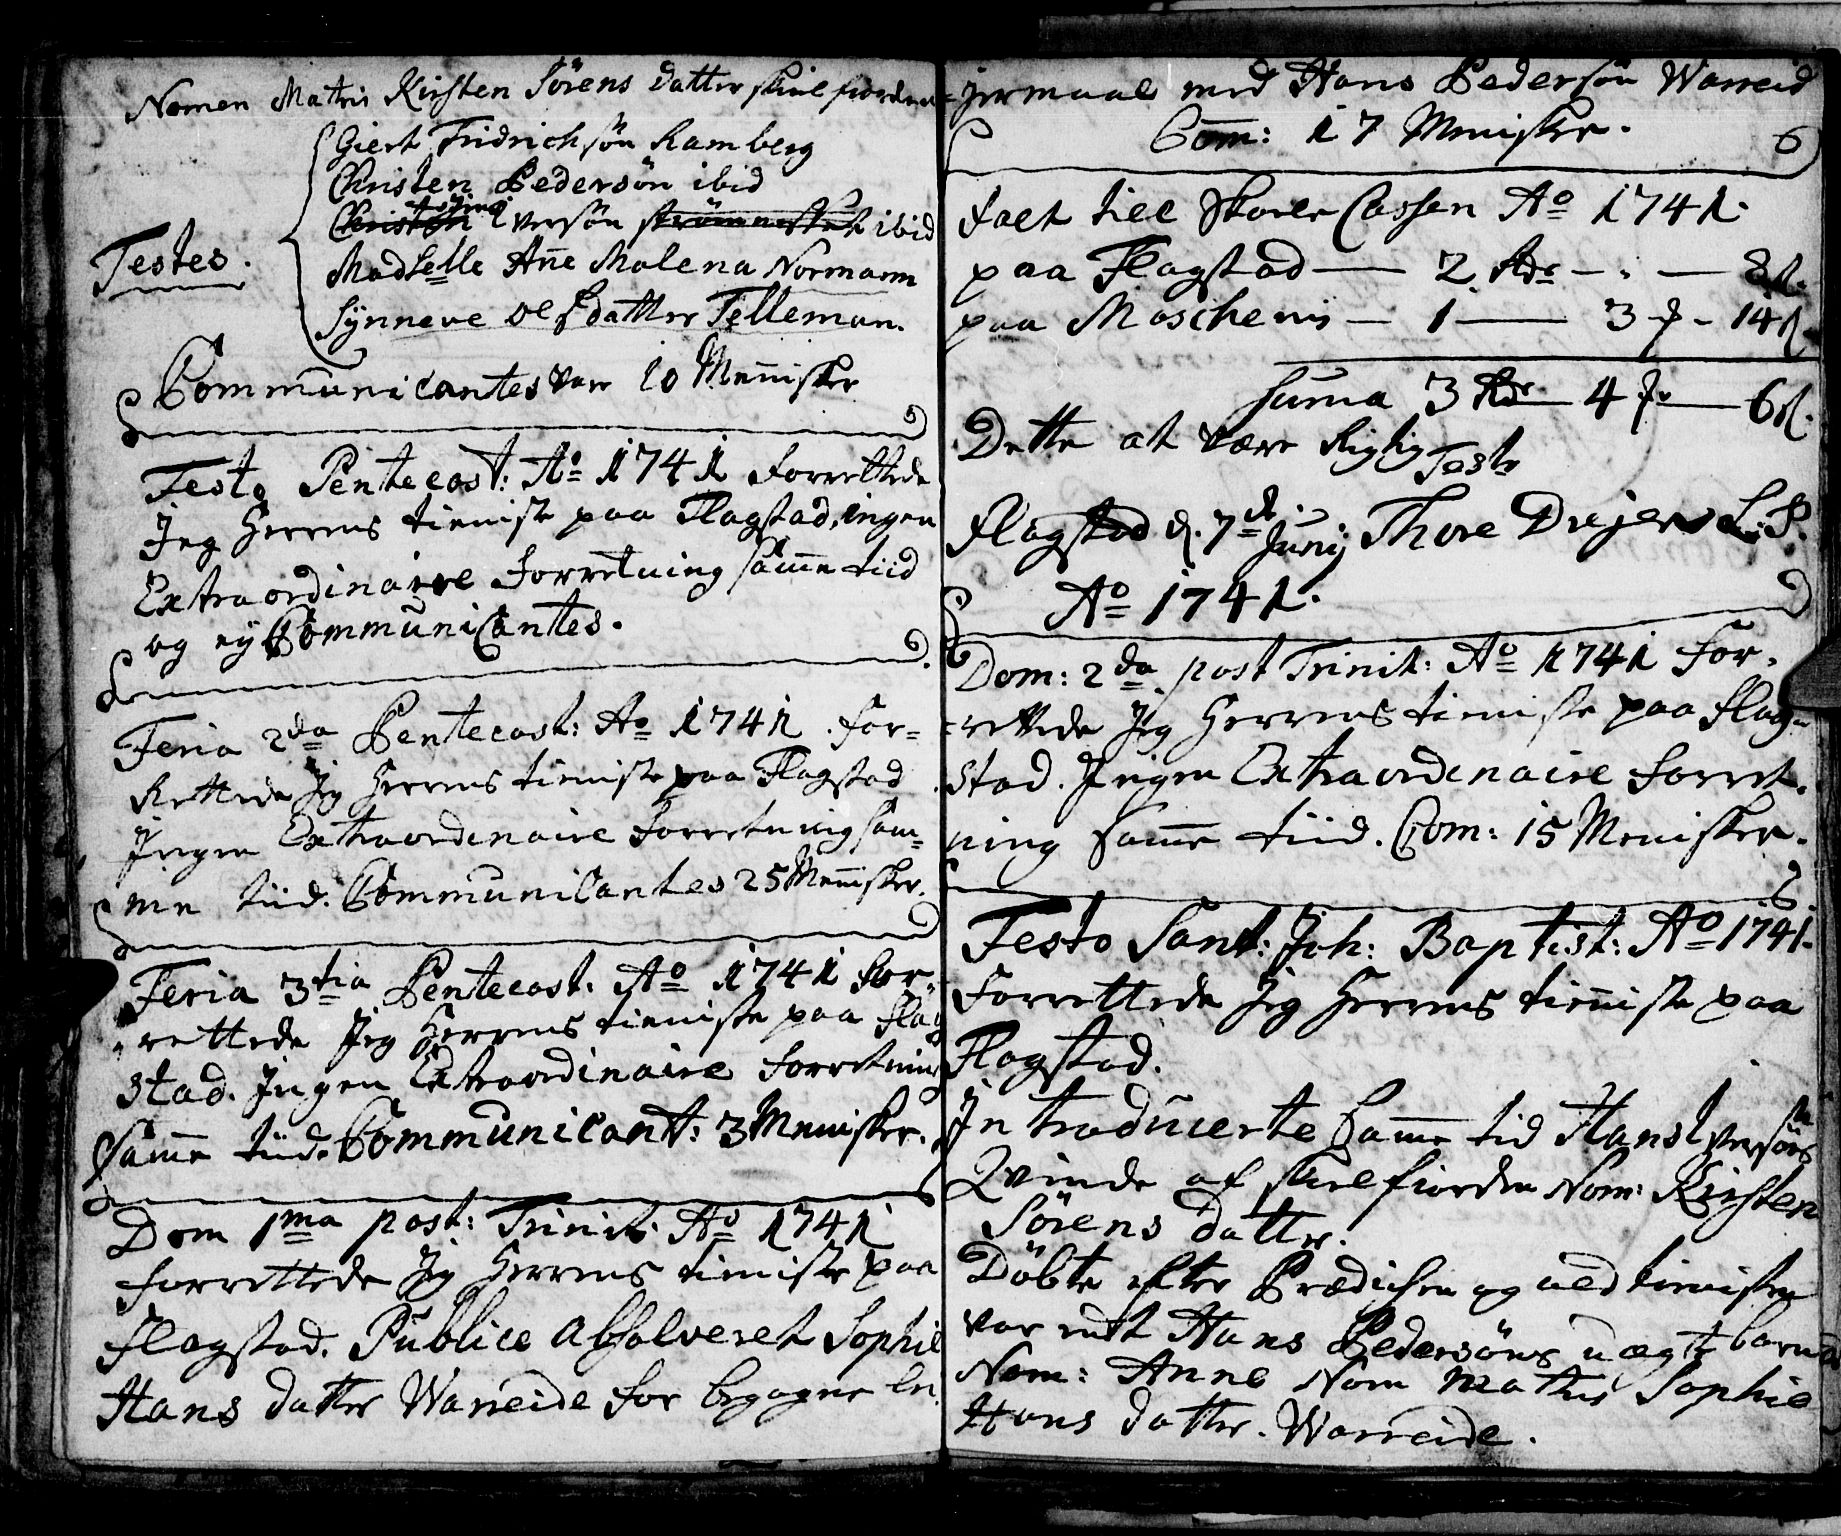 Nomen Matris Kirsten Sörens datter skielfiorden
Giert Fridrichsön Ramberg
Christen Pedersön ibid
Christen Iversön strömnesset ibid
Testes.
Madselle Añe Malena Normann
Synneve Olsdatter Telleman.
Communicantes vare 10 Meñisker
Festo Pentecost: Ao 1741 forrettede
Jeg Herrens tieniste paa Flagstad, ingen
Extraordinaire forretning sam̃e tiid
og ey Communicantes.
Feria 2da Pentecost: Ao 1741. for=
rettede Jeg Herrens tieniste paa Flagstad
Ingen Extraordinaire forretning sam=
me tiid. Communicantes 25 Meñisker.
Feria 3tia Pentecost. Ao 1741 for=
rettede Jeg Herrens tieniste paa Flag
stad. Ingen Extraordinaire forretning
sam̃e tiid. Communicant: 3 Menisker.
Dom 1ma post: Trinit: Ao 1741
forrettede Jeg Herrens tieniste paa
Flagstad. Publice absolveret Sophie
Hans datter Warreide for begagne lei
=germaal med Hans Pedersön Warreid
Com̃: 17 Menisker.
6
faet till Skole Cassen Ao 1741.
paa Flagstad — 2 Rdr — . — 8 s.
paa Moschenis — 1 — 3 — 14 s
suma 3 Rdr — 4 — 6 s.
Dette at være Rigtig Test
Flagstad d. 7de Junij Thore Drejer L:S.
Ao 1741.
Dom: 2da post Trinit: Ao 1741 for=
=rettede Jeg Herrens tieniste paa Flag=
stad. Ingen Extraordinaire forret=
ning sam̃e tiid. Com: 15 Menisker.
Festo Sanct: Joh: Baptist: Ao 1741.
forrettede Jeg Herrens tieñiste paa
Flagstad.
Introducerte sam̃e tid Hans Iversöns
Qvinde af skielfiorden Nom: Kirsten
Sörens datter.
Döbte efter Prædichen og ved tienisten
var endt Hans Pedersöns uægte barn
Nom: Anne Nom Matris Sophie
Hans datter. Warreide.